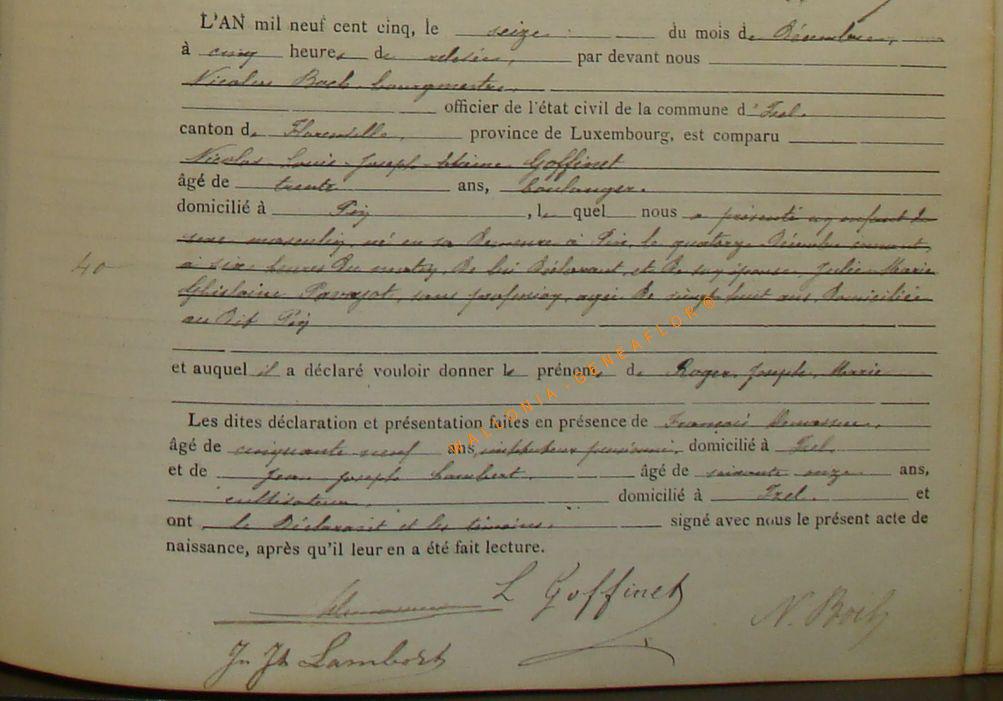 L'AN mil neuf cent cinq, le seize du mois de Décembre,
à cinq heures de relevée, par devant nous
Nicolas Bach, bourgmestre,
officier de l'état civil de la commune d'Izel
canton de Florenville, province de Luxembourg, est comparu
Nicolas Louis Joseph Goffinet
âgé de trente ans, boulanger.
domicilié à Pin , lequel nous a présenté un enfant du
sexe masculin, né en sa demeure à Pin, le quatorze Décembre courant,
40
à six heures du matin, de lui déclarant, et de son épouse Julie Marie
Ghislaine, sans profession, agée de vingt huit ans, domiciliée
au dit Pin
et auquel il a déclaré vouloir donner les prénoms de Roger Joseph Marie
Les dites déclaration et présentation faites en présence de François
âgé de cinquante neuf ans, instituteur pensionné, domicilié à Izel
et de Jean Joseph Lambert. âgé de soixante onze ans,
cultivateur, domicilié à Izel. et
ont le Déclarant et les témoins, signé avec nous le présent acte de
naissance, après qu'il leur en a été fait lecture.
L Goffinet
N. Bach
Jn Jh Lambert
WALLONIA-GENEAFLOR®